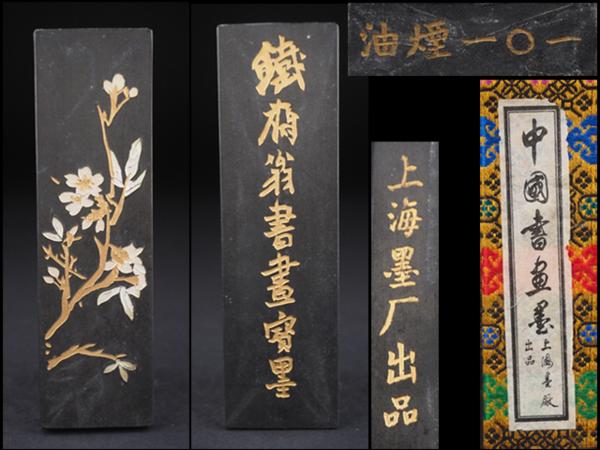 鐵齋翁書畫寳墨
油煙一〇一
上海墨厂出品
中國書畫墨
上海墨厰
出品